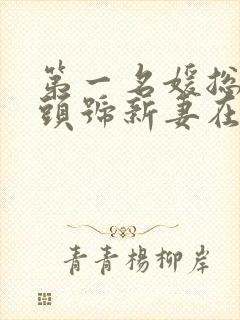 第一名媛總
頭號新妻在
青青楊柳岸